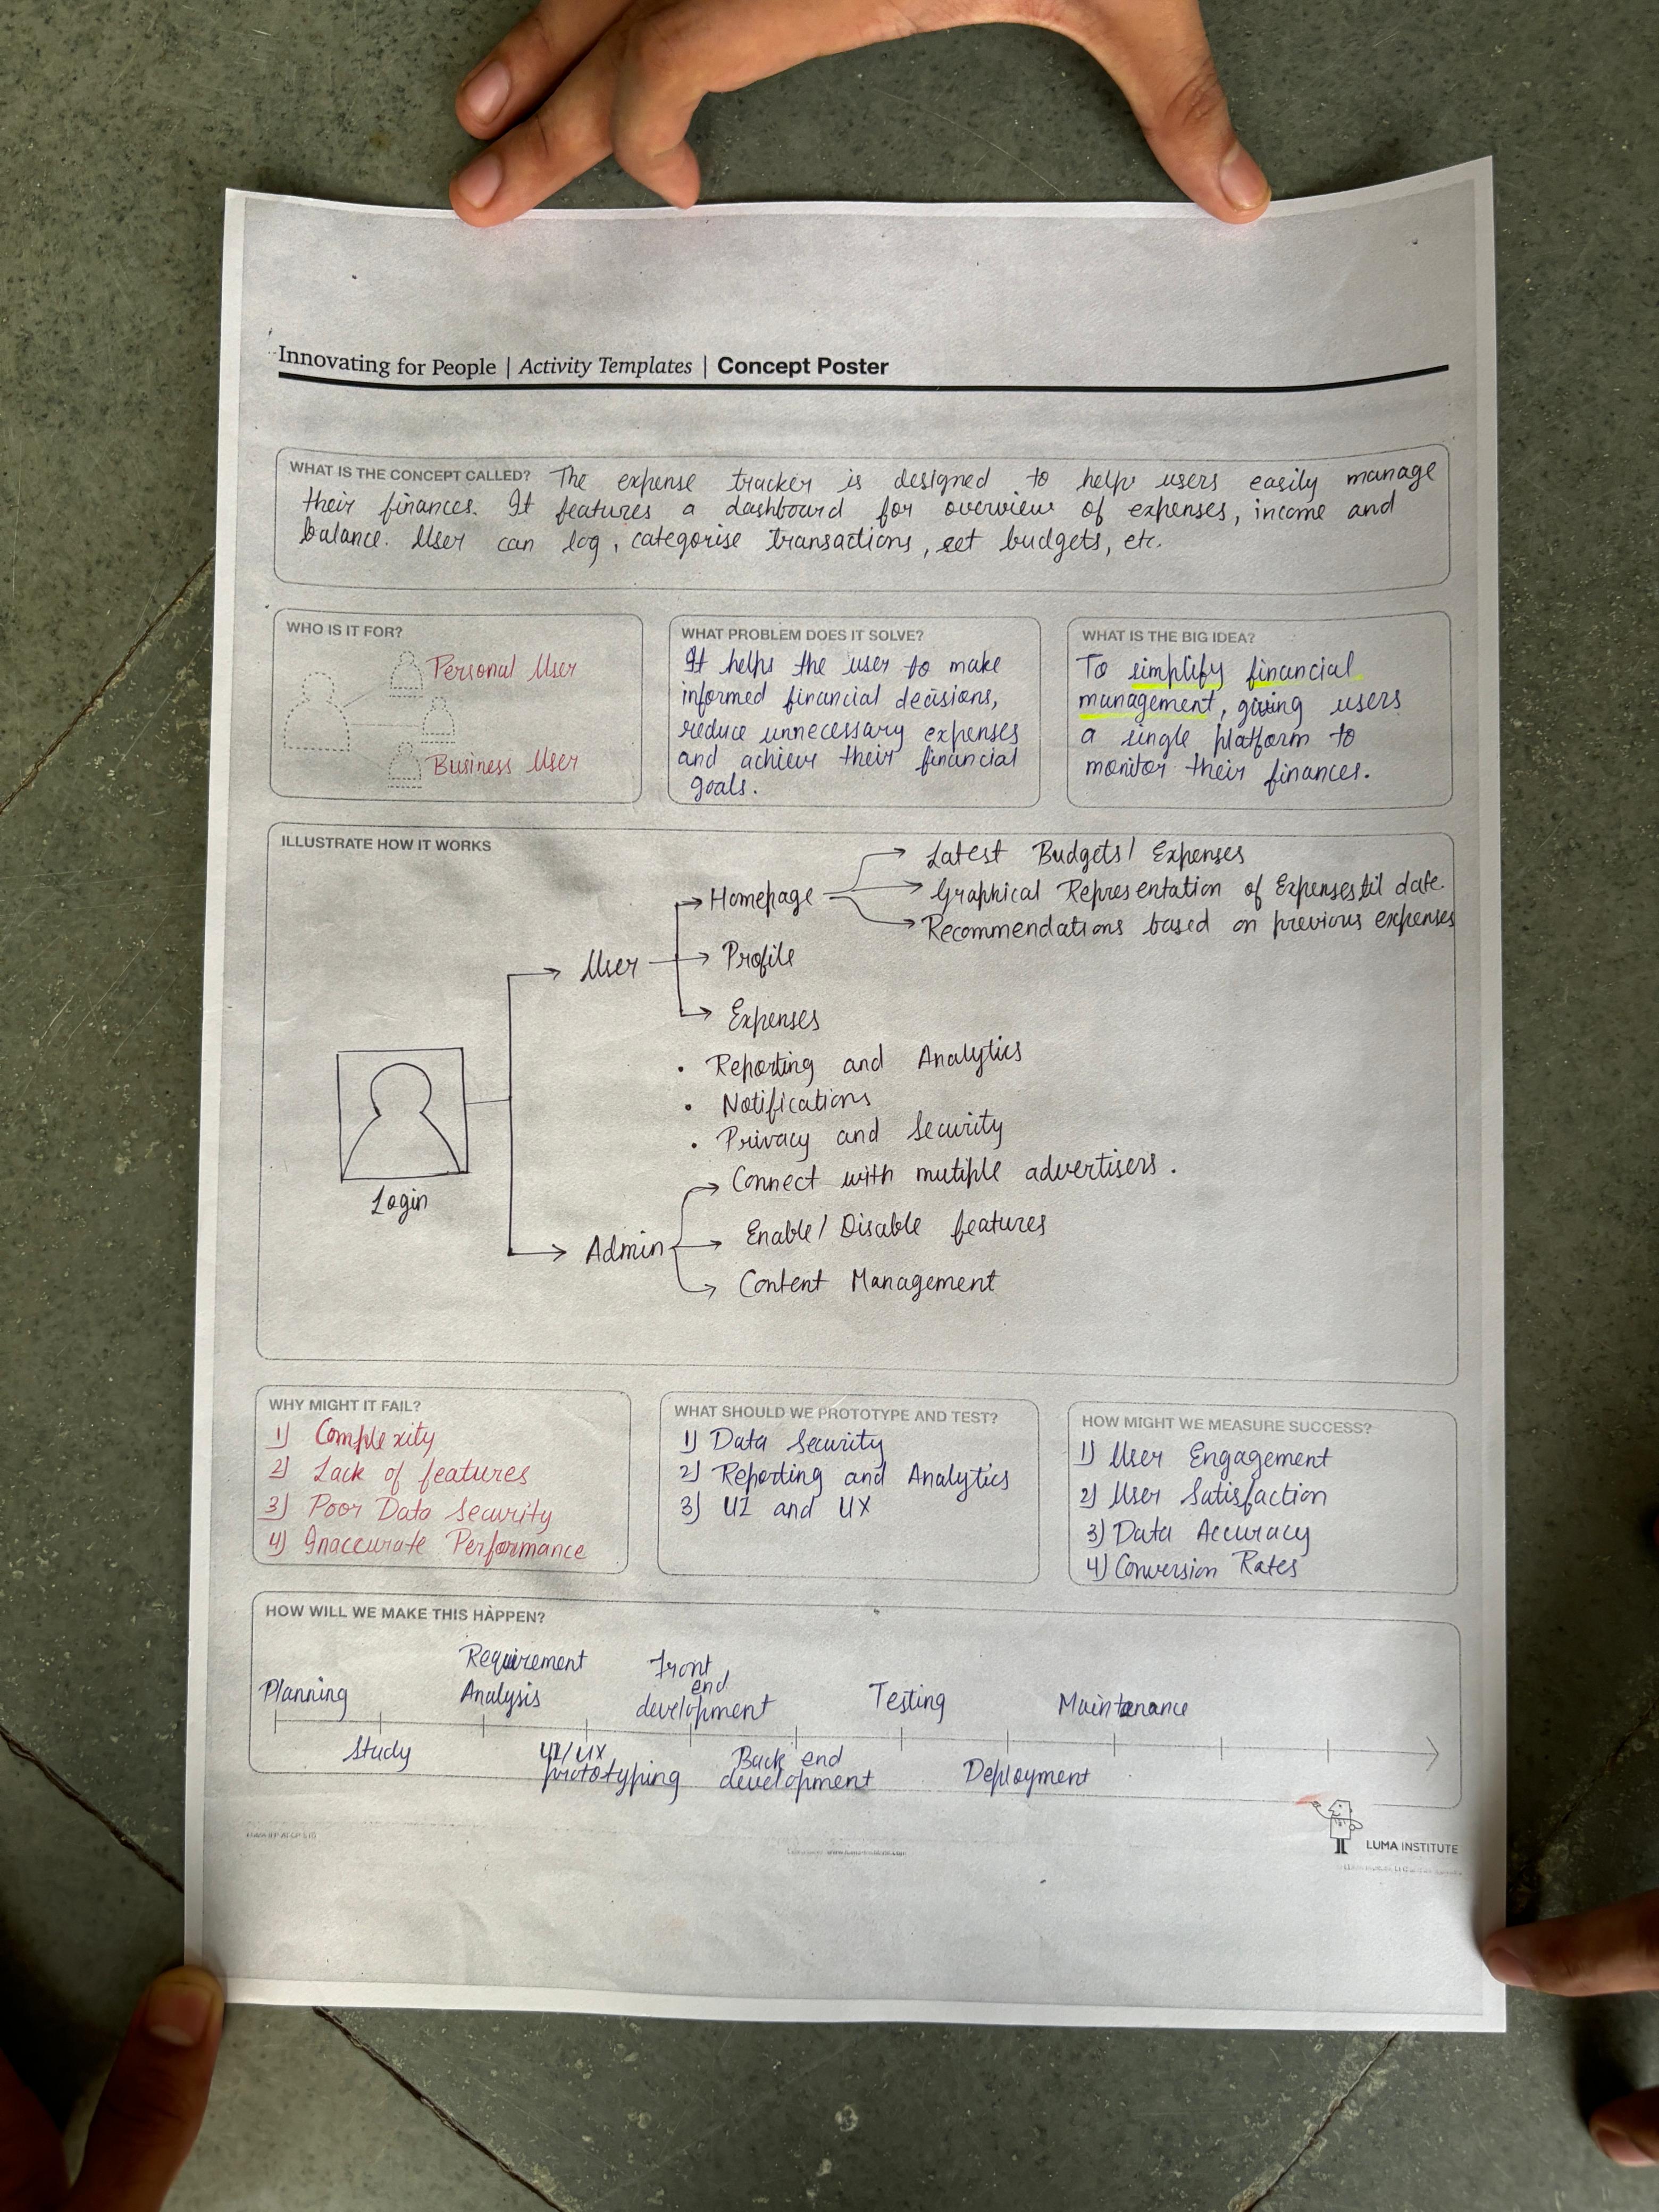 Innovating for People | Activity Templates | Concept Poster
WHAT IS THE CONCEPT CALLED? The expense tracker is designed to help users easily manage
their finances. It features a dashboard for overview of expenses, income and
balance. User can log, categorise transactions, set budgets, etc.
WHO IS IT FOR?
Personal User
Business User
WHAT PROBLEM DOES IT SOLVE?
It helps the user to make
informed financial decisions,
reduce unnecessary expenses
and achieve their financial
goals.
WHAT IS THE BIG IDEA?
To simplify financial
management, giving users
a single platform to
monitor their finances.
ILLUSTRATE HOW IT WORKS
Latest Budgets/ Expenses
Homepage
Graphical Representation of Expenses til date.
Recommendations based on previous expenses
User
Profile
Expenses
• Reporting and Analytics
• Notifications
• Privacy and Security
Login
Connect with mutiple advertisers.
Admin
Enable/ Disable features
Content Management
WHY MIGHT IT FAIL?
1) Complexity
2) Lack of features
3) Poor Data Security
4) Inaccurate Performance
WHAT SHOULD WE PROTOTYPE AND TEST?
1) Data Security
2) Reporting and Analytics
3) UI and UX
HOW MIGHT WE MEASURE SUCCESS?
1) User Engagement
2) User Satisfaction
3) Data Accuracy
4) Conversion Rates
HOW WILL WE MAKE THIS HAPPEN?
Planning
Study
Requirement
Analysis
UI/UX
prototyping
Front
end
development
Back end
development
Testing
Deployment
Maintenance
LUMA INSTITUTE